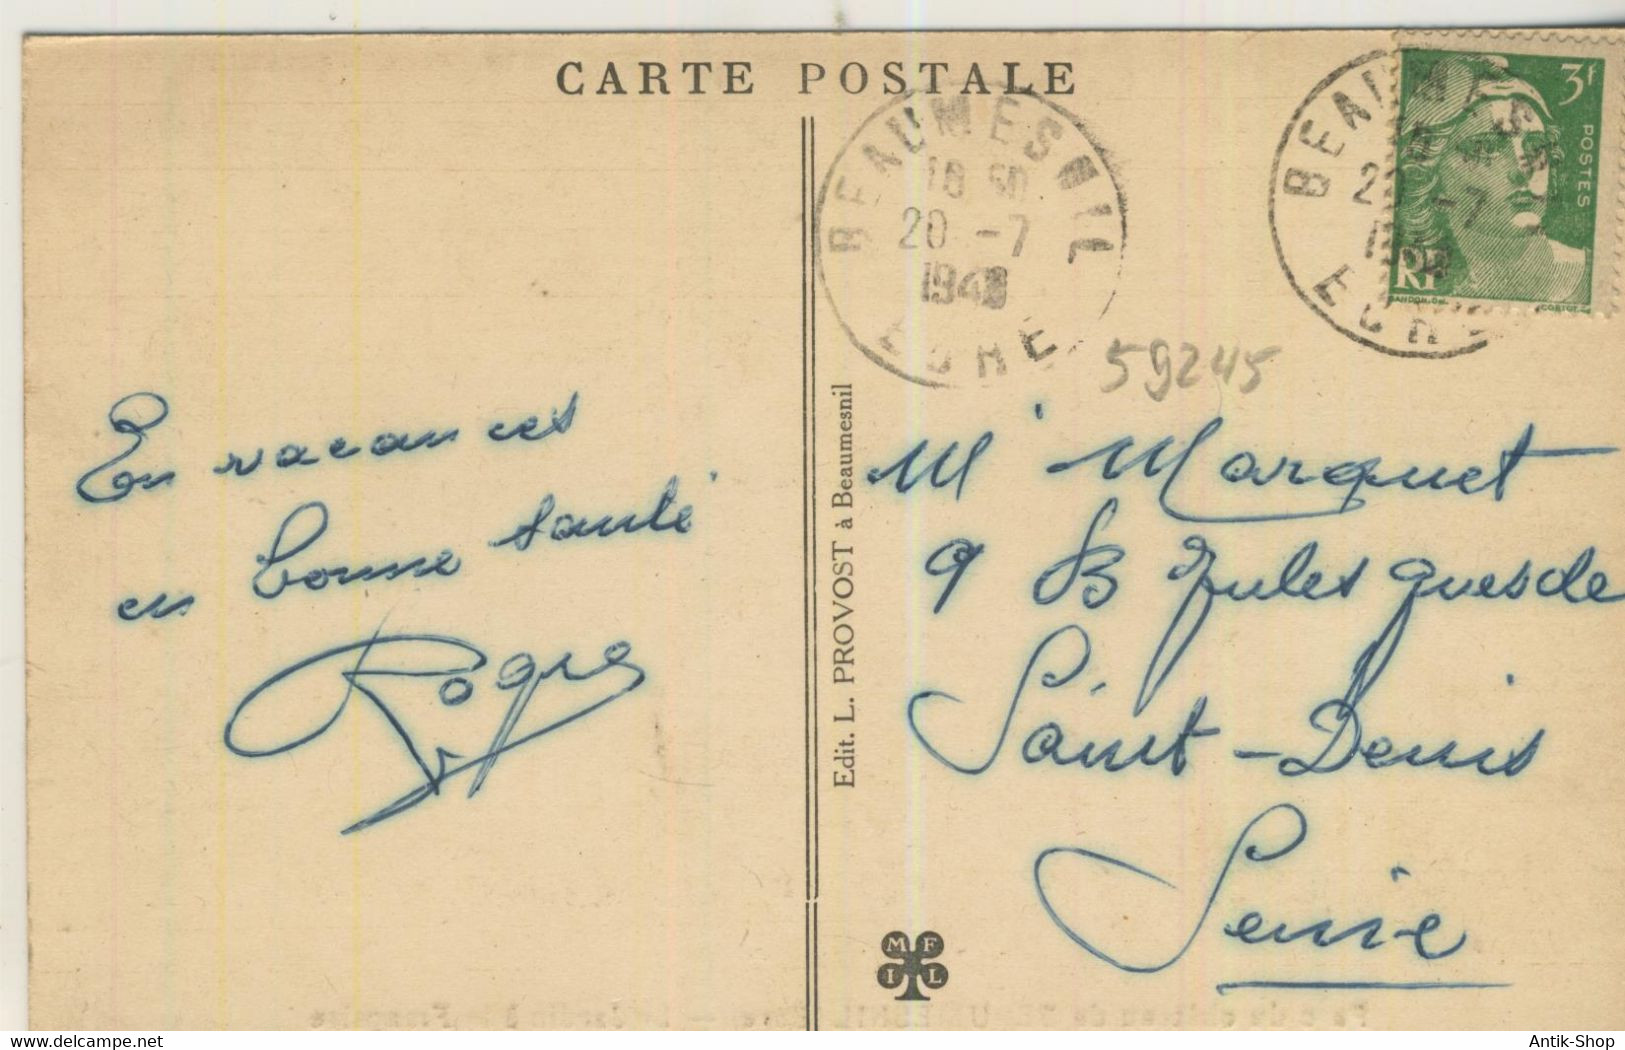 CARTE POSTALE
BEAUMESNIL
18 30
20 -7
1948
EURE
BEAUMESNIL
20 -7
EURE
3f
POSTES
RF
GANDON. Del.
59245
En vacances
en bonne santé
Edit. L. PROVOST à Beaumesnil
Mr Marquet
9 B Jules Guesde
Saint-Denis
Seine
M F
I L
delcampe.net
Antik-Shop